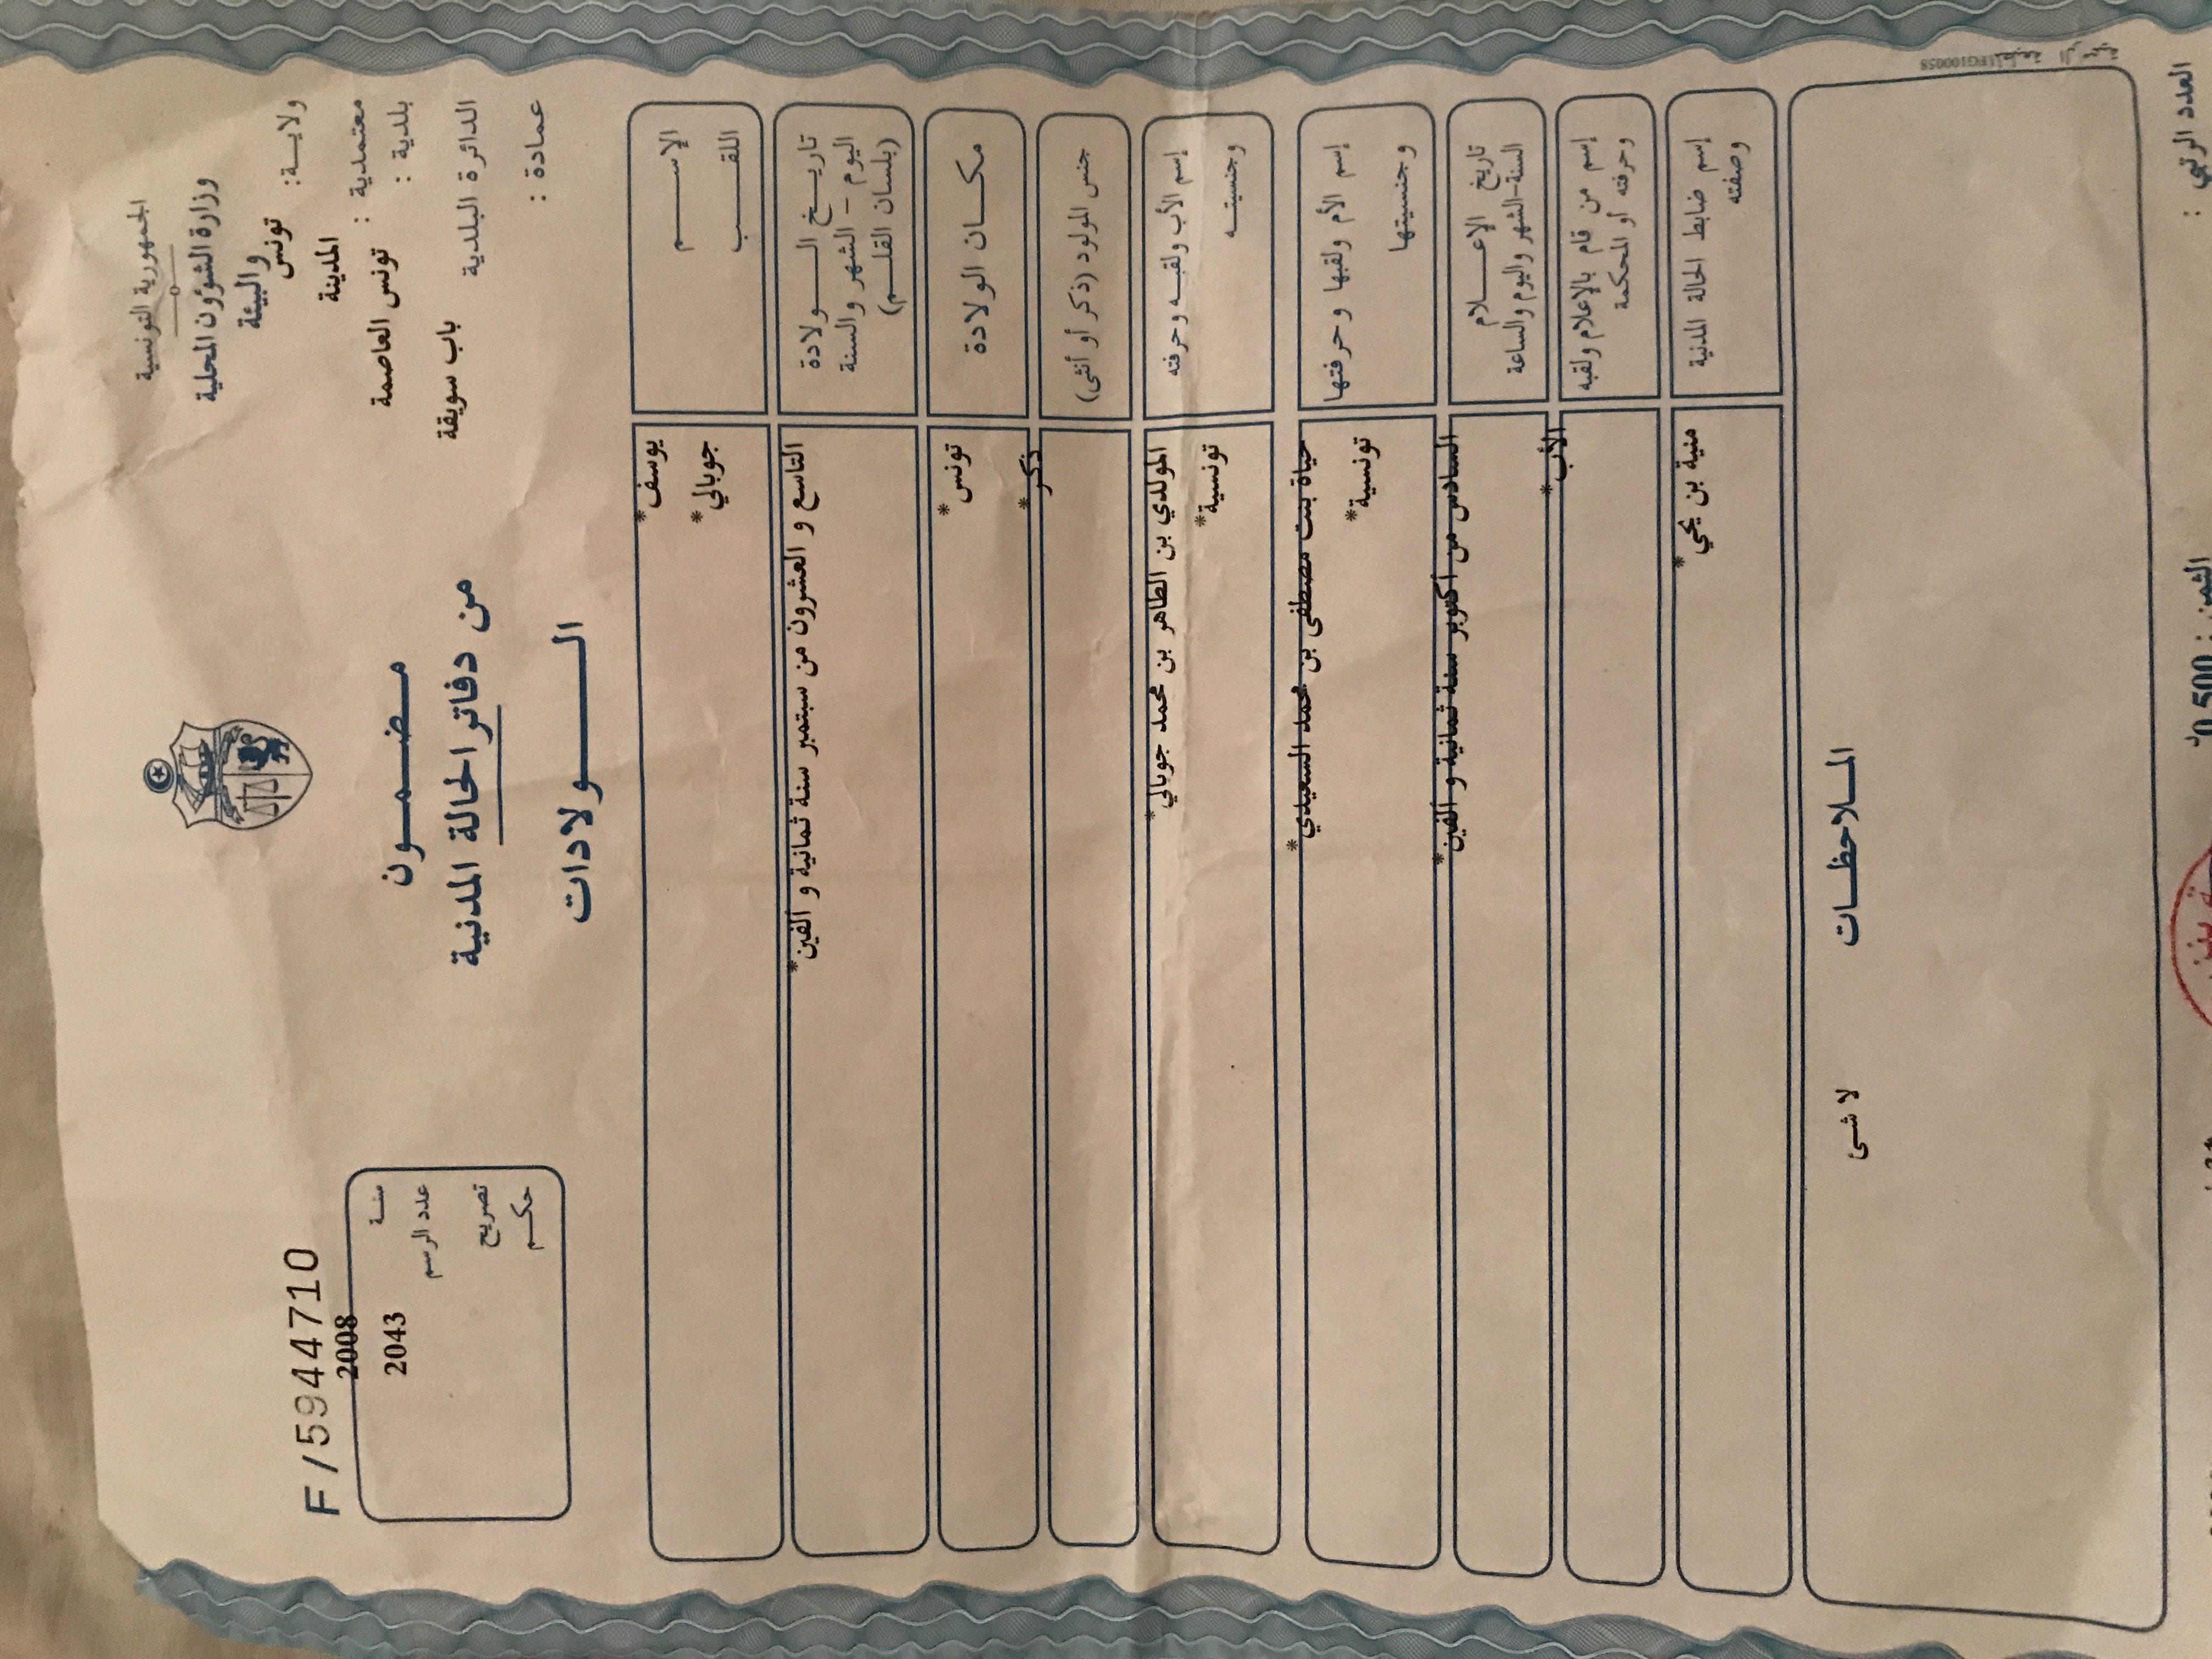 الجمهورية التونسية
وزارة الشؤون المحلية
والبيئة
ولايـــة: تونس
معتمدية : المدينة
بلدية : تونس العاصمة
الدائرة البلدية باب سويقة
عمادة :
مـضـمـون
من دفاتر الحالة المدنية
الـــولادات
F/5944710
سنـــة 2008
عدد الرسم 2043
تصريح
حكـــم
الإســـــم يوسف*
اللقـــــب جوبالي*
تاريـــخ الـــــولادة التاسع و العشرون من سبتمبر سنة ثمانية و ألفين*
اليوم – الشهر والسنة
(بلسان القلـــم)
مكـــان الولادة تونس*
جنس المولود (ذكر أو أنثى) ذكر*
إسم الأب ولقبـه وحرفته المولدي بن الطاهر بن محمد جوبالي*
وجنسيتـــه تونسية*
إسم الأم ولقبها وحرفتها حياة بنت مصطفى بن محمد السعيدي*
وجنسيتها تونسية*
تاريخ الإعـــلام السادس من أكتوبر سنة ثمانية و ألفين*
السنة-الشهر واليوم والساعة
إسم من قام بالإعلام ولقبه الأب*
وحرفته أو المحكمة
إسم ضابط الحالة المدنية منية بن يحي*
وصفته
المـلاحظـات
لا شئ
FG100058
العدد الرتبي :
الثمن : 0,500 د